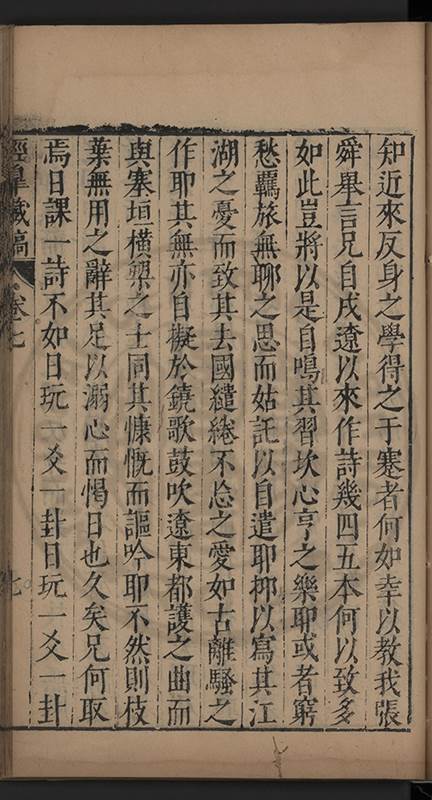 知近來反身之學得之于蹇者何如幸以教我張
舜舉言兄自戍遼以來作詩幾四五本何以致多
如此豈將以是自鳴其習坎心亨之樂耶或者窮
愁羈旅無聊之思而姑託以自遣耶抑以寫其江
湖之憂而致其去國繾綣不忘之愛如古離騷之
作耶其無亦自擬於鐃歌鼓吹遼東都護之曲而
與塞垣橫槊之士同其慷慨而謳吟耶不然則枝
葉無用之辭其足以溺心而愒日也久矣兄何取
焉日課一詩不如日玩一爻一卦日玩一爻一卦
經皐藏稿 卷七 七